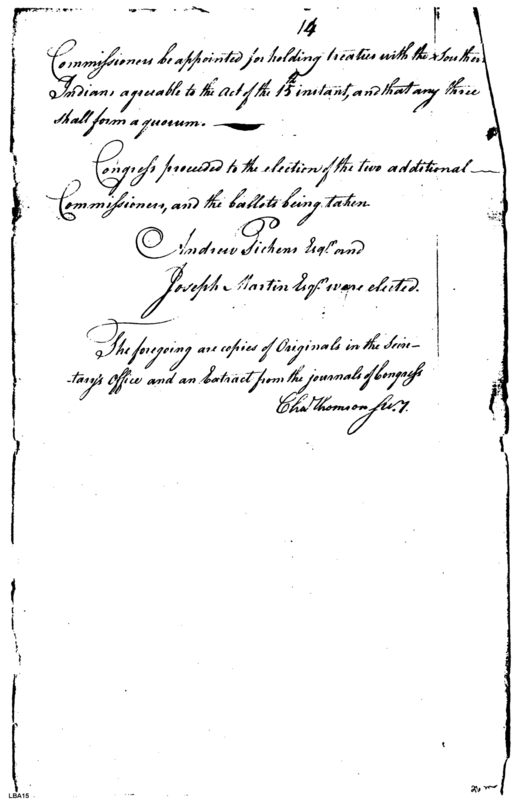 14
Commissioners be appointed for holding treaties with the Southern
Indians agreeable to the act of the 15th instant, and that any three
shall form a quorum.
Congress proceeded to the election of the two additional
Commissioners, and the ballots being taken
Andrew Pickens Esqr. and
Joseph Martin Esqr. were elected.
The foregoing are copies of Originals in the Secre-
-tary's Office and an Extract from the journals of Congress
Chas. Thomson Secy.
LBA15